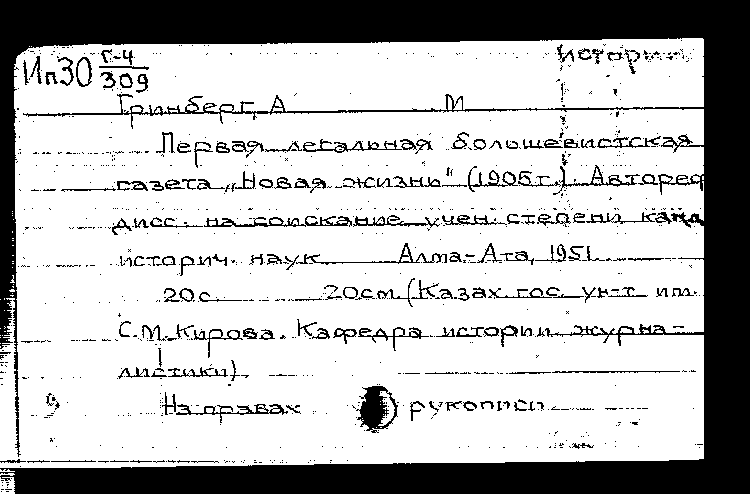 Ип30 Г-4/309
истории
Гринберг, А М
Первая легальная большевистская
газета „Новая жизнь" (1905 г.). Автореф
дисс. на соискание учен. степени канд
историч. наук Алма-Ата, 1951
20 с. 20 см. (Казах. гос. ун-т им.
С.М. Кирова. Кафедра истории журна-
листики).
9 На правах рукописи